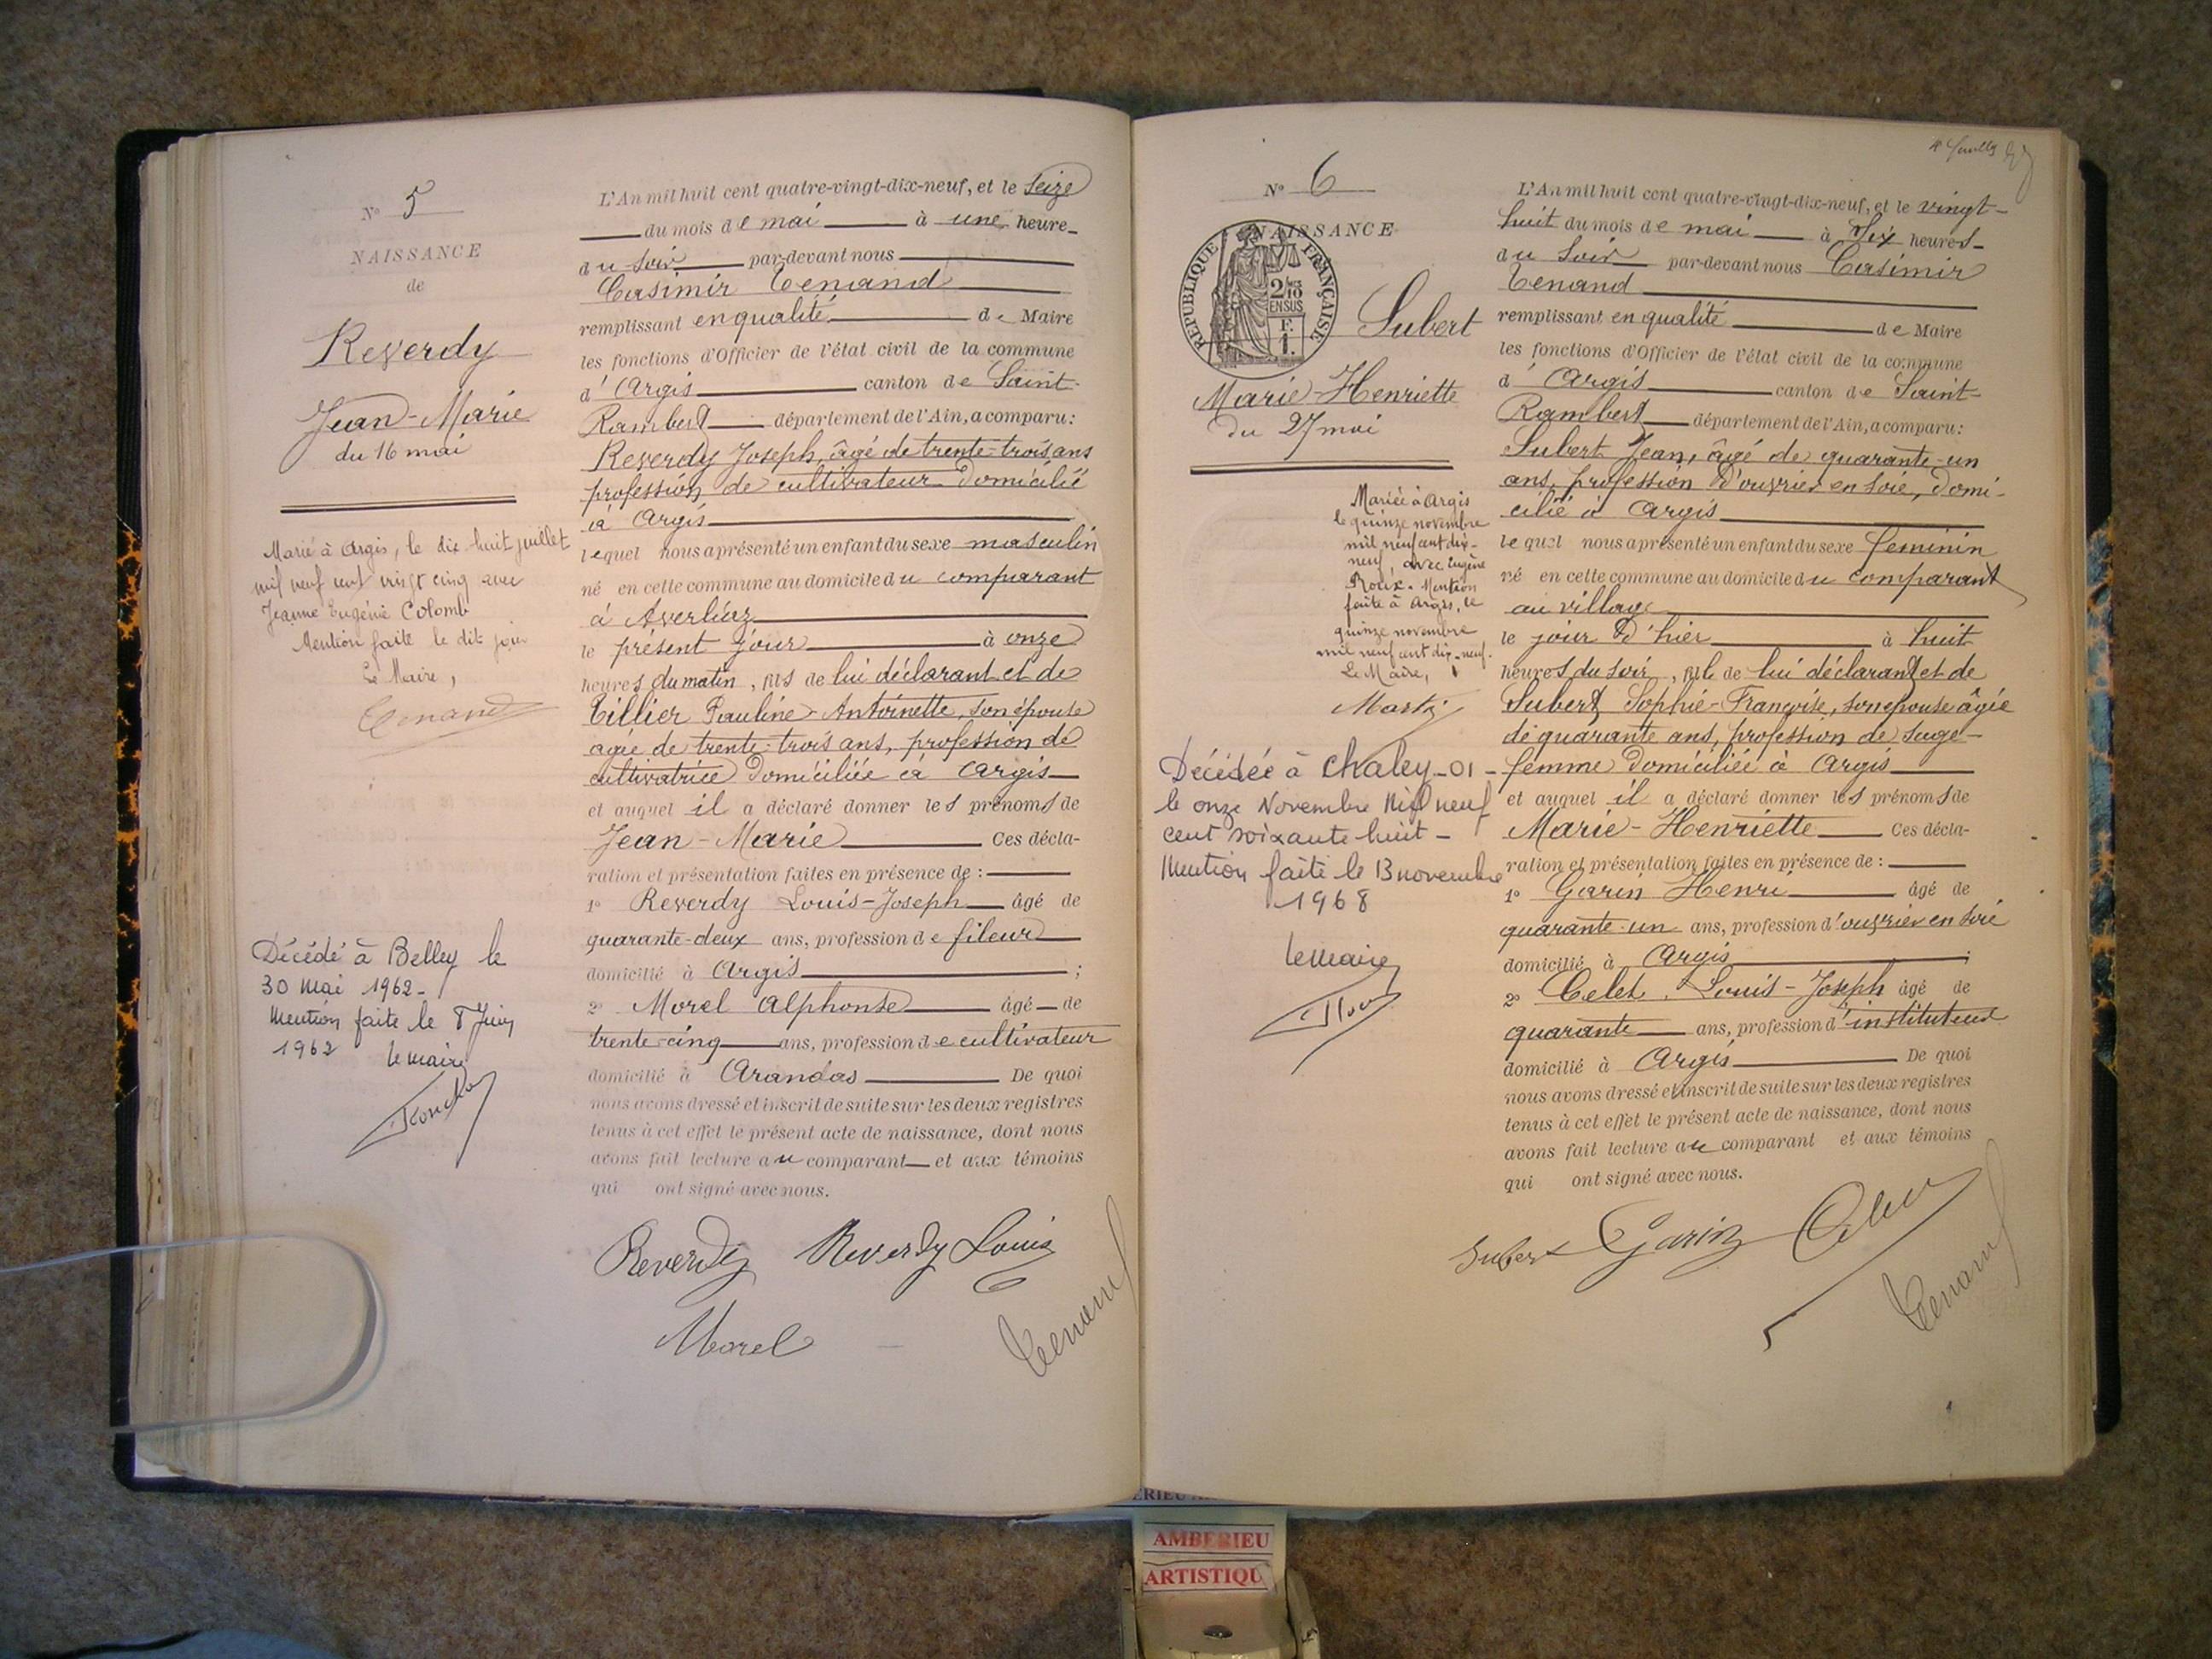 N° 5
NAISSANCE
de
Reverdy
Jean-Marie
du 16 mai
Marié à Argis, le dix huit juillet
mil neuf cent vingt cinq avec
Jeanne Eugénie Colomb
Mention faite le dit jour
Le Maire,
Tenand
Décédé à Belley le
30 Mai 1962-
Mention faite le 8 Juin
1962 le maire
L'An mil huit cent quatre-vingt-dix-neuf, et le Seize
du mois de mai à une heure
du soir par-devant nous
Casimir Tenand
remplissant en qualité de Maire
les fonctions d'Officier de l'état civil de la commune
d'Argis canton de Saint-
Rambert département de l'Ain, a comparu:
Reverdy Joseph, âgé de trente-trois ans
profession de cultivateur domicilié
à Argis
lequel nous a présenté un enfant du sexe masculin
né en cette commune au domicile du comparant
à Averliaz
le présent jour à onze
heures du matin, fils de lui déclarant et de
Tillier Pauline-Antoinette, son épouse
agée de trente-trois ans, profession de
cultivatrice domiciliée à Argis
et auquel il a déclaré donner les prénoms de
Jean-Marie Ces décla-
ration et présentation faites en présence de :
1° Reverdy Louis-Joseph âgé de
quarante-deux ans, profession de fileur
domicilié à Argis ;
2° Morel Alphonse âgé de
trente-cinq ans, profession de cultivateur
domicilié à Arandas De quoi
nous avons dressé et inscrit de suite sur les deux registres
tenus à cet effet le présent acte de naissance, dont nous
avons fait lecture au comparant et aux témoins
qui ont signé avec nous.
Reverdy Reverdy Louis
Morel Tenand
N° 6
NAISSANCE
RÉPUBLIQUE FRANÇAISE
2/10
EN SUS
F.
1.
Subert
Marie-Henriette
du 27 mai
Mariée à Argis
le quinze novembre
mil neuf cent dix-
neuf, avec Eugène
Roux. Mention
faite à Argis, le
quinze novembre
mil neuf cent dix-neuf.
Le Maire,
Décédée à Chaley-01-
le onze Novembre Mil neuf
cent soixante huit-
Mention faite le 13 novembre
1968
le maire
L'An mil huit cent quatre-vingt-dix-neuf, et le vingt-
huit du mois de mai à Six heures
du Soir par-devant nous Casimir
Tenand
remplissant en qualité de Maire
les fonctions d'Officier de l'état civil de la commune
d'Argis canton de Saint-
Rambert département de l'Ain, a comparu:
Subert Jean, âgé de quarante-un
ans, profession d'ouvrier en soie, domi-
cilié à Argis
lequel nous a présenté un enfant du sexe féminin
né en cette commune au domicile du comparant
au village
le jour d'hier à huit
heures du soir, fille de lui déclarant et de
Subert Sophie-Françoise, son epouse âgée
de quarante ans, profession de sage-
femme domiciliée à Argis
et auquel il a déclaré donner les prénoms de
Marie-Henriette Ces décla-
ration et présentation faites en présence de :
1° Garin Henri âgé de
quarante-un ans, profession d'ouvrier en soie
domicilié à Argis ;
2° Celet Louis-Joseph âgé de
quarante ans, profession d'instituteur
domicilié à Argis De quoi
nous avons dressé et inscrit de suite sur les deux registres
tenus à cet effet le présent acte de naissance, dont nous
avons fait lecture au comparant et aux témoins
qui ont signé avec nous.
Subert Garin
Tenand
AMBERIEU
ARTISTIQU